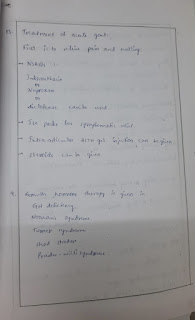 Treatment of acute gout.
First is to relieve pain and swelling
- NSAIDs :
Indomethacin
or
Naproxen
or
diclofenac can be used.
- Ice packs for symptomatic relief
- Intraarticular steroid injection can be given
- steroids can be given
9. Growth hormone therapy is given in
GH deficiency
Noonan's syndrome
Turner syndrome
short stature
Prader-willi syndrome